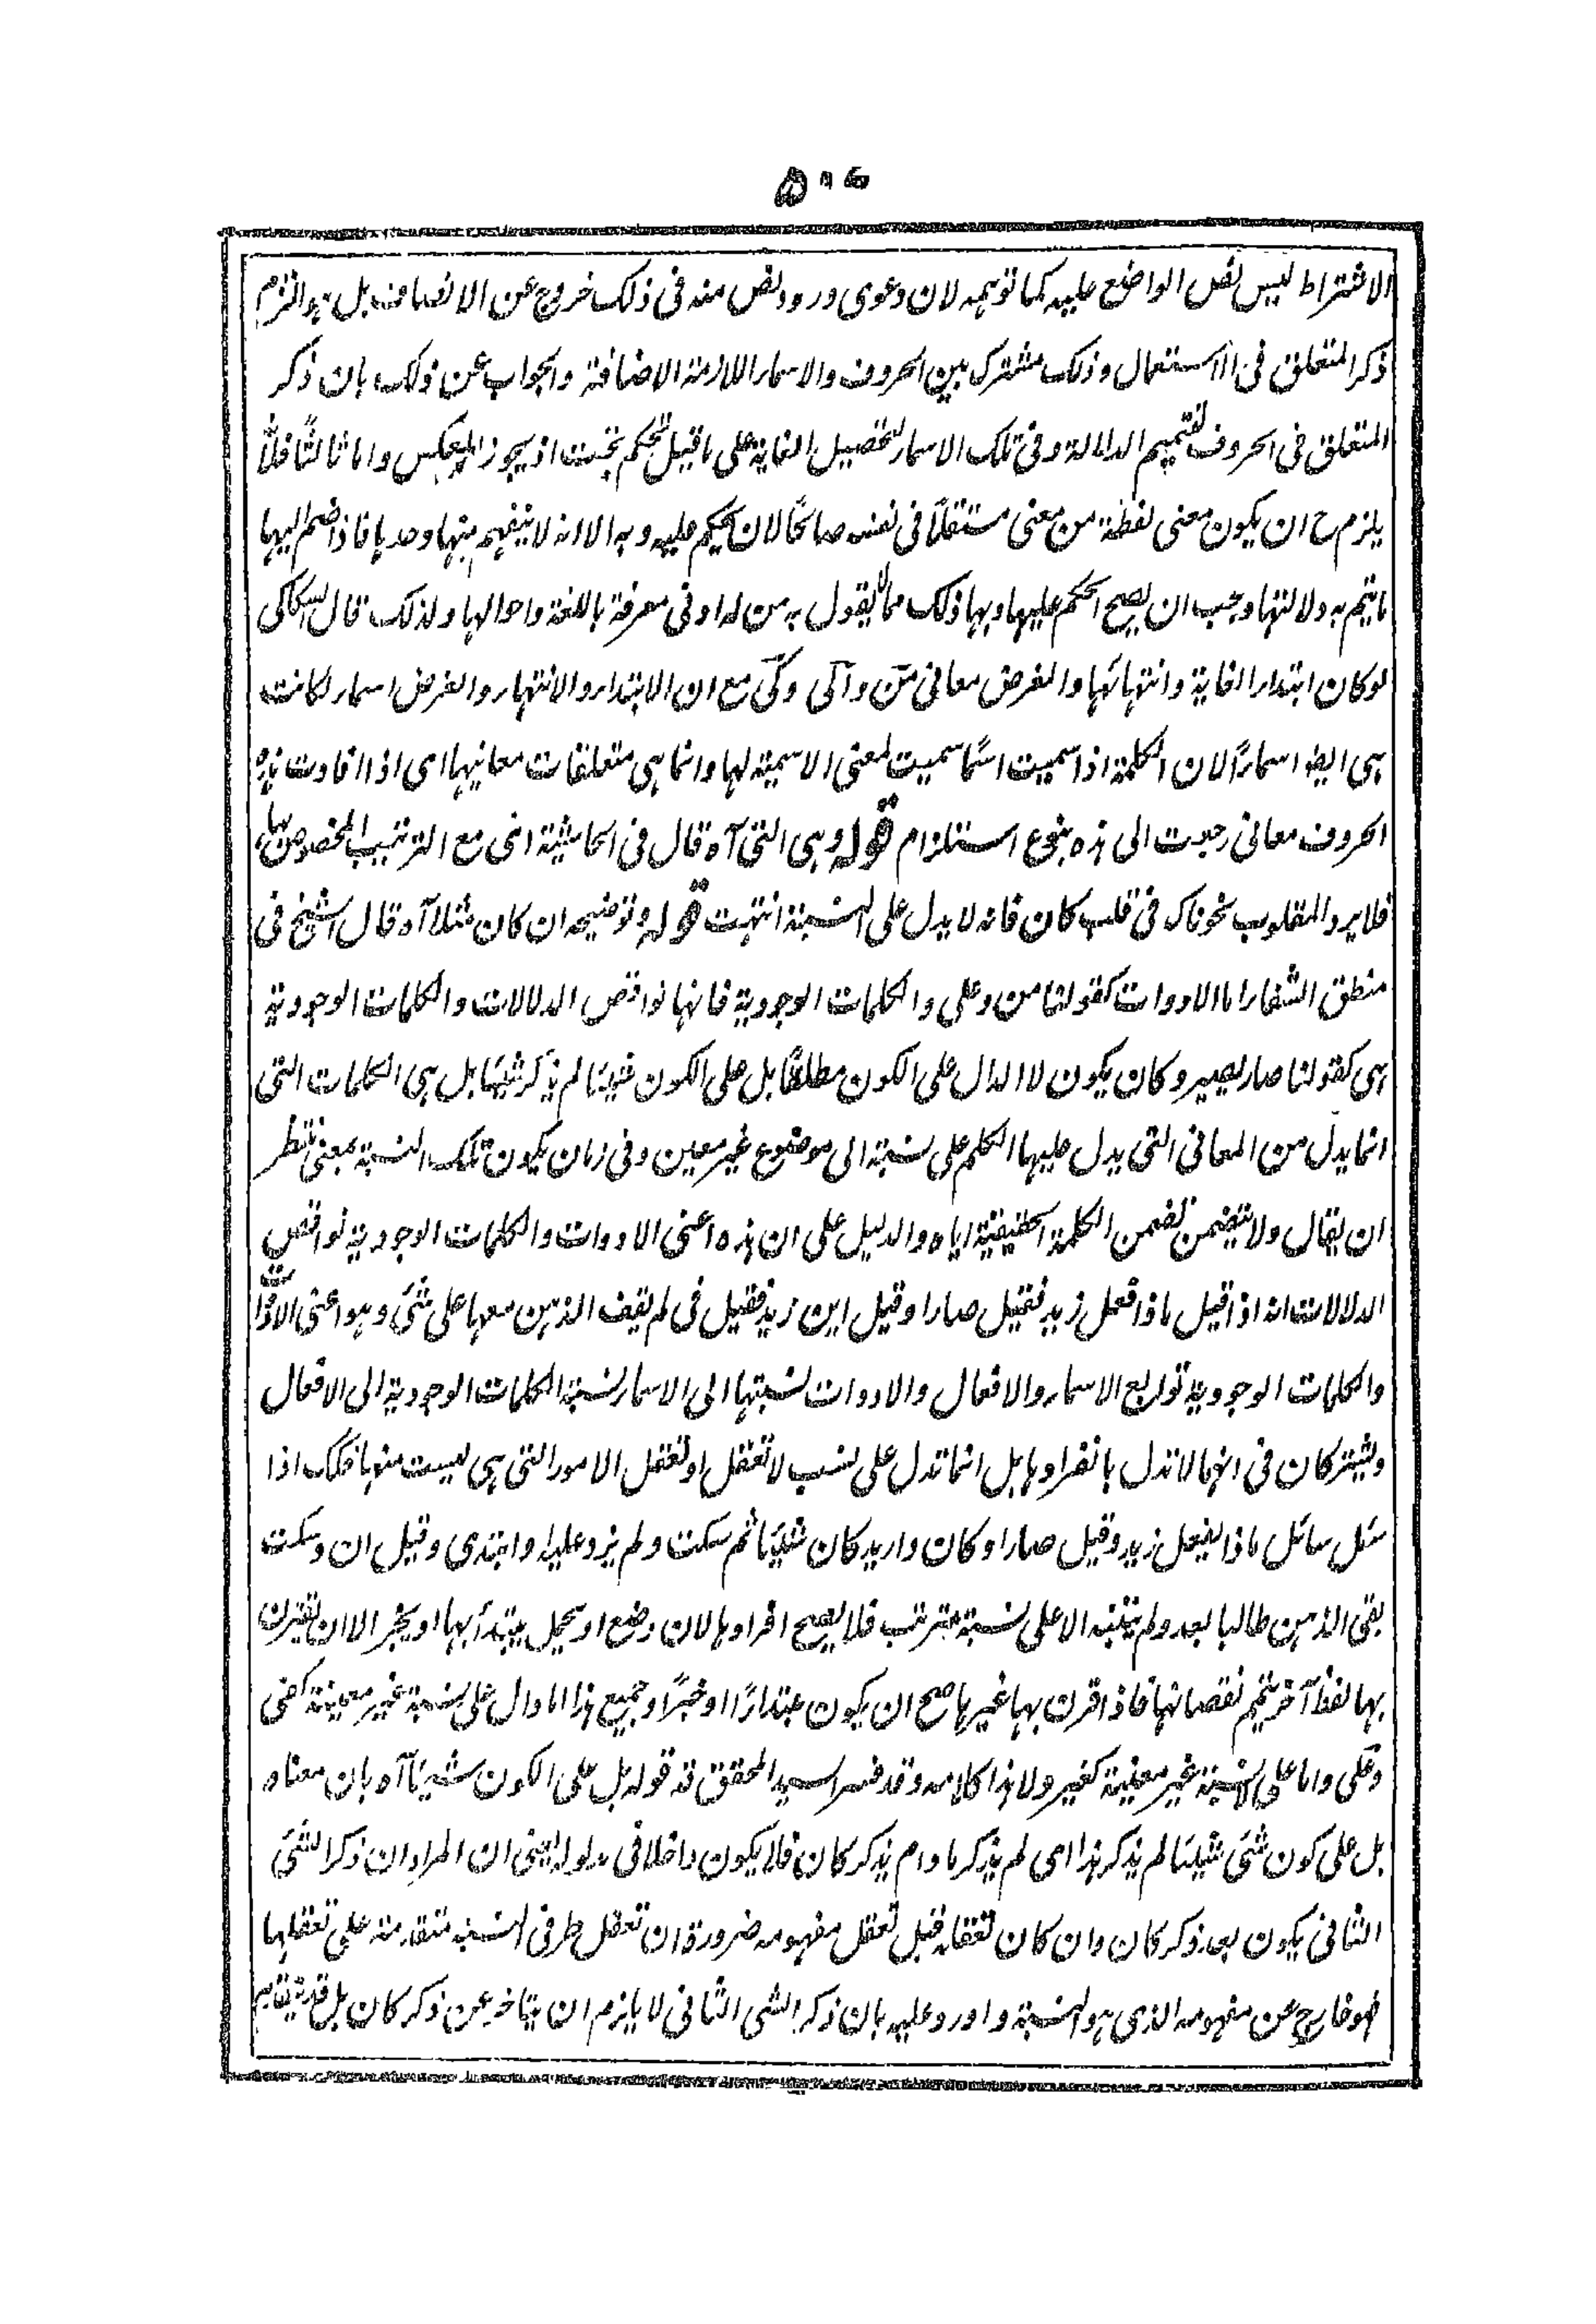 ٥٠٦
الاشتراط ليس نص الواضع عليه كما توهمه لان دعوى ورود نص منه فى ذلك خروج عن الانصاف بل هو التزام
ذكر المتعلق فى الاستعمال وذلك مشترك بين الحروف والاسماء اللازمة الاضافة والجواب عن ذلك بان ذكر
المتعلق فى الحروف لتتميم الدلالة وفى تلك الاسماء لتحصيل الغاية على ما قيل تحكم بحت اذ يجوز العكس واما ثالثًا فلانه
يلزم ح ان يكون معنى لفظة من معنى مستقلًا فى نفسه صالحًا لان يحكم عليه وبه الا انه لا ينفهم منها وحدها فاذا ضم اليها
ما يتم به دلالتها وجب ان يصح الحكم عليها وبها ذلك مما لا يقول به من له ادنى معرفة باللغة واحوالها ولذلك قال السكاكى
لو كان ابتداء الغاية وانتهائها والغرض معانى من والى وكى مع ان الابتداء والانتهاء والغرض اسماء لكانت
هى ايضا اسماءً لان الكلمة اذا سميت اسمًا سميت لمعنى الاسمية لها وانما هى متعلقات معانيها اى اذا افادت هذه
الحروف معانى رجعت الى هذه بنوع استلزام قوله وهى التى آه قال فى الحاشية اى مع الترتيب المخصوص بها
فلا يرد المقلوب نحو ناك فى قلب كان فانه لا يدل على النسبة انتهت قوله وتوضيحه ان كان مثلا آه قال الشيخ فى
منطق الشفاء اما الادوات كقولنا من وعلى والكلمات الوجودية فانها نواقص الدلالات والكلمات الوجودية
هى كقولنا صار يصير وكان يكون لا الدال على الكون مطلقًا بل على الكون شيئًا لم يذكر شيئها بل هى الكلمات التى
انما يدل من المعانى التى يدل عليها الكلم على نسبة الى موضوع غير معين وفى زمان يكون تلك النسبة بمعنى ينتظر
ان يقال ولا يتضمن تضمن الكلمة الحقيقية اياه والدليل على ان هذه اعنى الادوات والكلمات الوجودية نواقص
الدلالات انه اذا قيل ماذا فعل زيد فقيل صار او قيل اين زيد فقيل فى لم يقف الذهن معها على شئ وهو اعنى الادوات
والكلمات الوجودية توابع الاسماء والافعال والادوات نسبتها الى الاسماء نسبة الكلمات الوجودية الى الافعال
ويشتركان فى انهما لا تدل بانفرادها بل انما تدل على نسب لا تعقل او تعقل الامور التى هى ليست منها فكك اذا
سئل سائل ماذا يفعل زيد وقيل صار او كان واريد كان شيئًا ثم سكت ولم يزد عليه او ابتدى وقيل ان وسكت
بقى الذهن طالبا بعد ولم يتنبه الا على نسبة مترتب فلا يصح افرادها لان وضع او يحمل يبتدأ بها او يخبر الا ان تقترن
بها لفظ آخر يتم نقصانها فاذا قرن بها غيرها صح ان يكون مبتداءً او خبرًا وجميع هذا اما دال على نسبة غير معينة كفى
وعلى واما على لا نسبة غير معينة كغير ولا هذا كلامه وقد فسر السيد المحقق قد قوله بل على الكون شيئًا آه بان معناه
بل على كون شئ شيئا لم يذكر هذا اى لم يذكر ما دام يذكر كان فلا يكون داخلا فى مدلوله يعنى ان المراد ان ذكر الشئ
الثانى يكون بعد ذكر كان وان كان تعقله قبل تعقل مفهومه ضرورة ان تعقل طرفى النسبة متقدمة على تعقلها
فهو خارج عن مفهومه الذى هو النسبة واورد عليه بان ذكر الشى الثانى لا يلزم ان يتاخر عن ذكر كان بل قد يتقدم